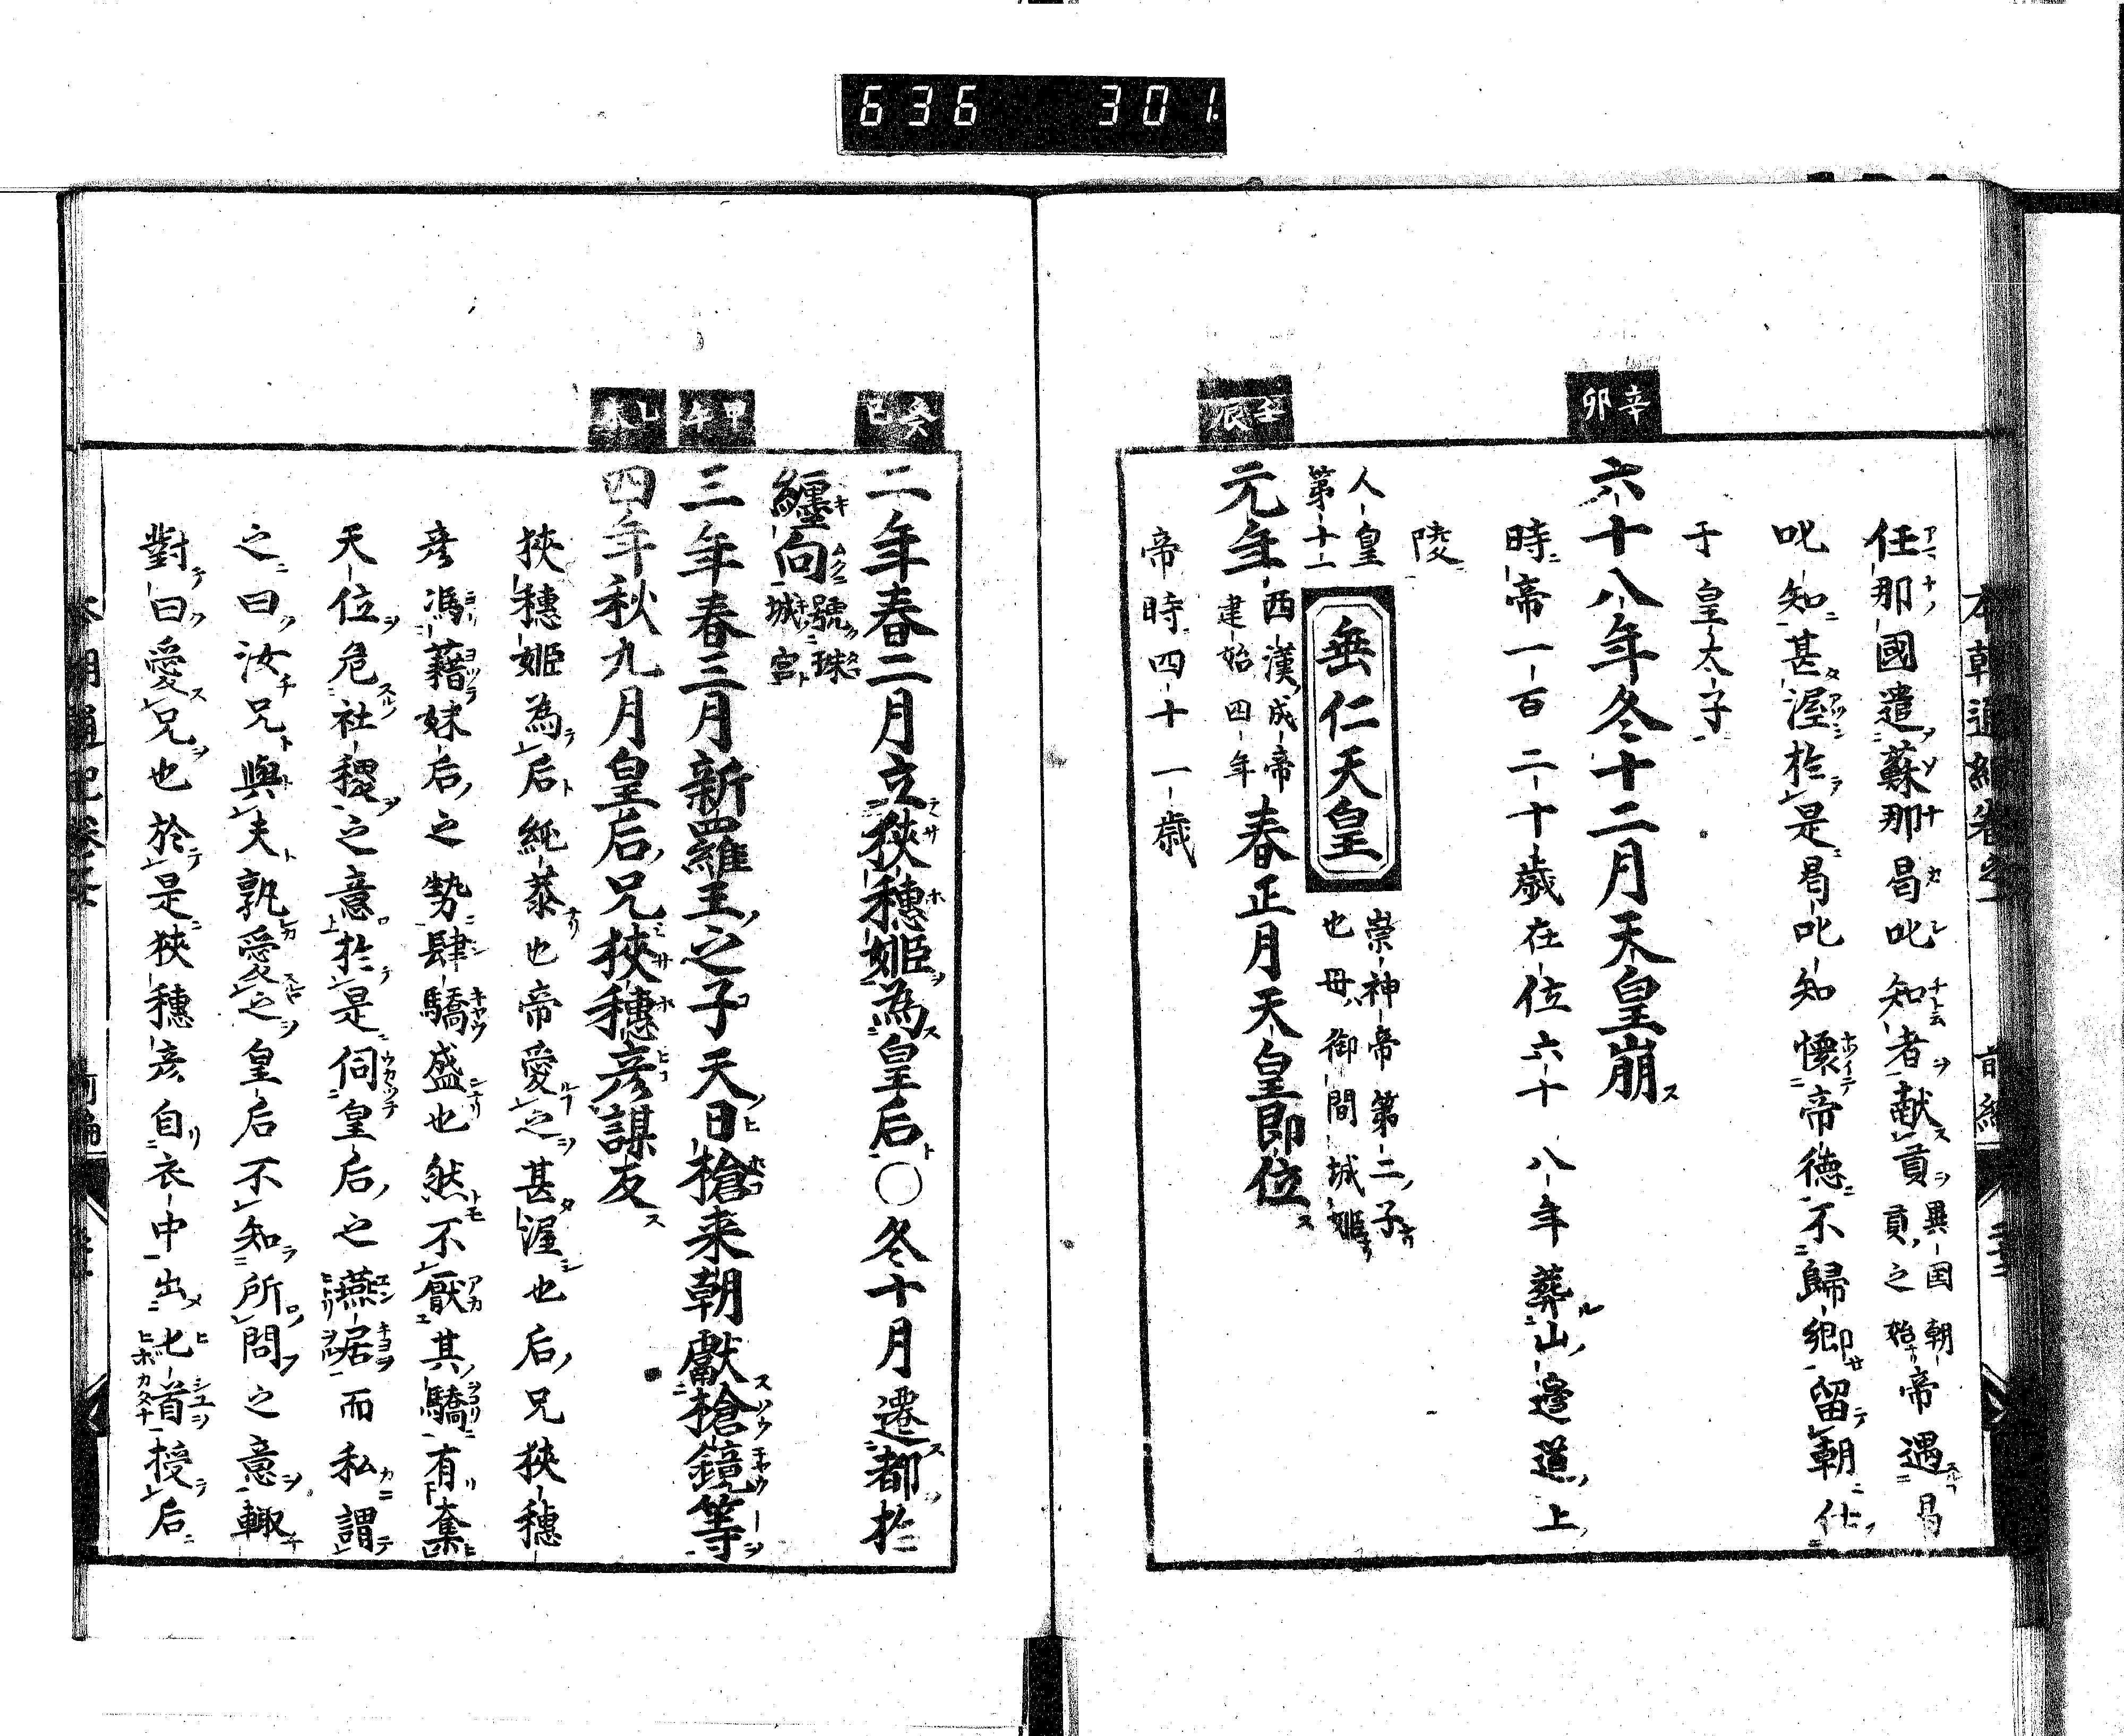 636 301.
任那國遣蘇那曷叱知者献貢異國朝貢之始帝遇曷
叱知甚渥於是曷叱知懷帝德不歸鄉留朝仕
于皇太子
辛卯
六十八年冬十二月天皇崩
時帝一百二十歲在位六十八年葬山邊道上
陵
人皇第十一
垂仁天皇
崇神帝第二子也母御間城姬
壬辰
元年西漢成帝建始四年春正月天皇即位
帝時四十一歲
癸巳
二年春二月立狹穗姬為皇后〇冬十月遷都於
纏向號珠城宮
甲午
三年春三月新羅王之子天日槍来朝獻槍鏡等
乙未
四年秋九月皇后兄狹穗彦謀反
狹穗姬為后純恭也帝愛之甚渥也后兄狹穗
彦馮藉妹后之勢肆驕盛也然不厭其驕有奪
天位危社稷之意於是伺皇后之燕居而私謂
之曰汝兄與夫孰愛之皇后不知所問之意輙
對曰愛兄也於是狹穗彦自衣中出匕首授后